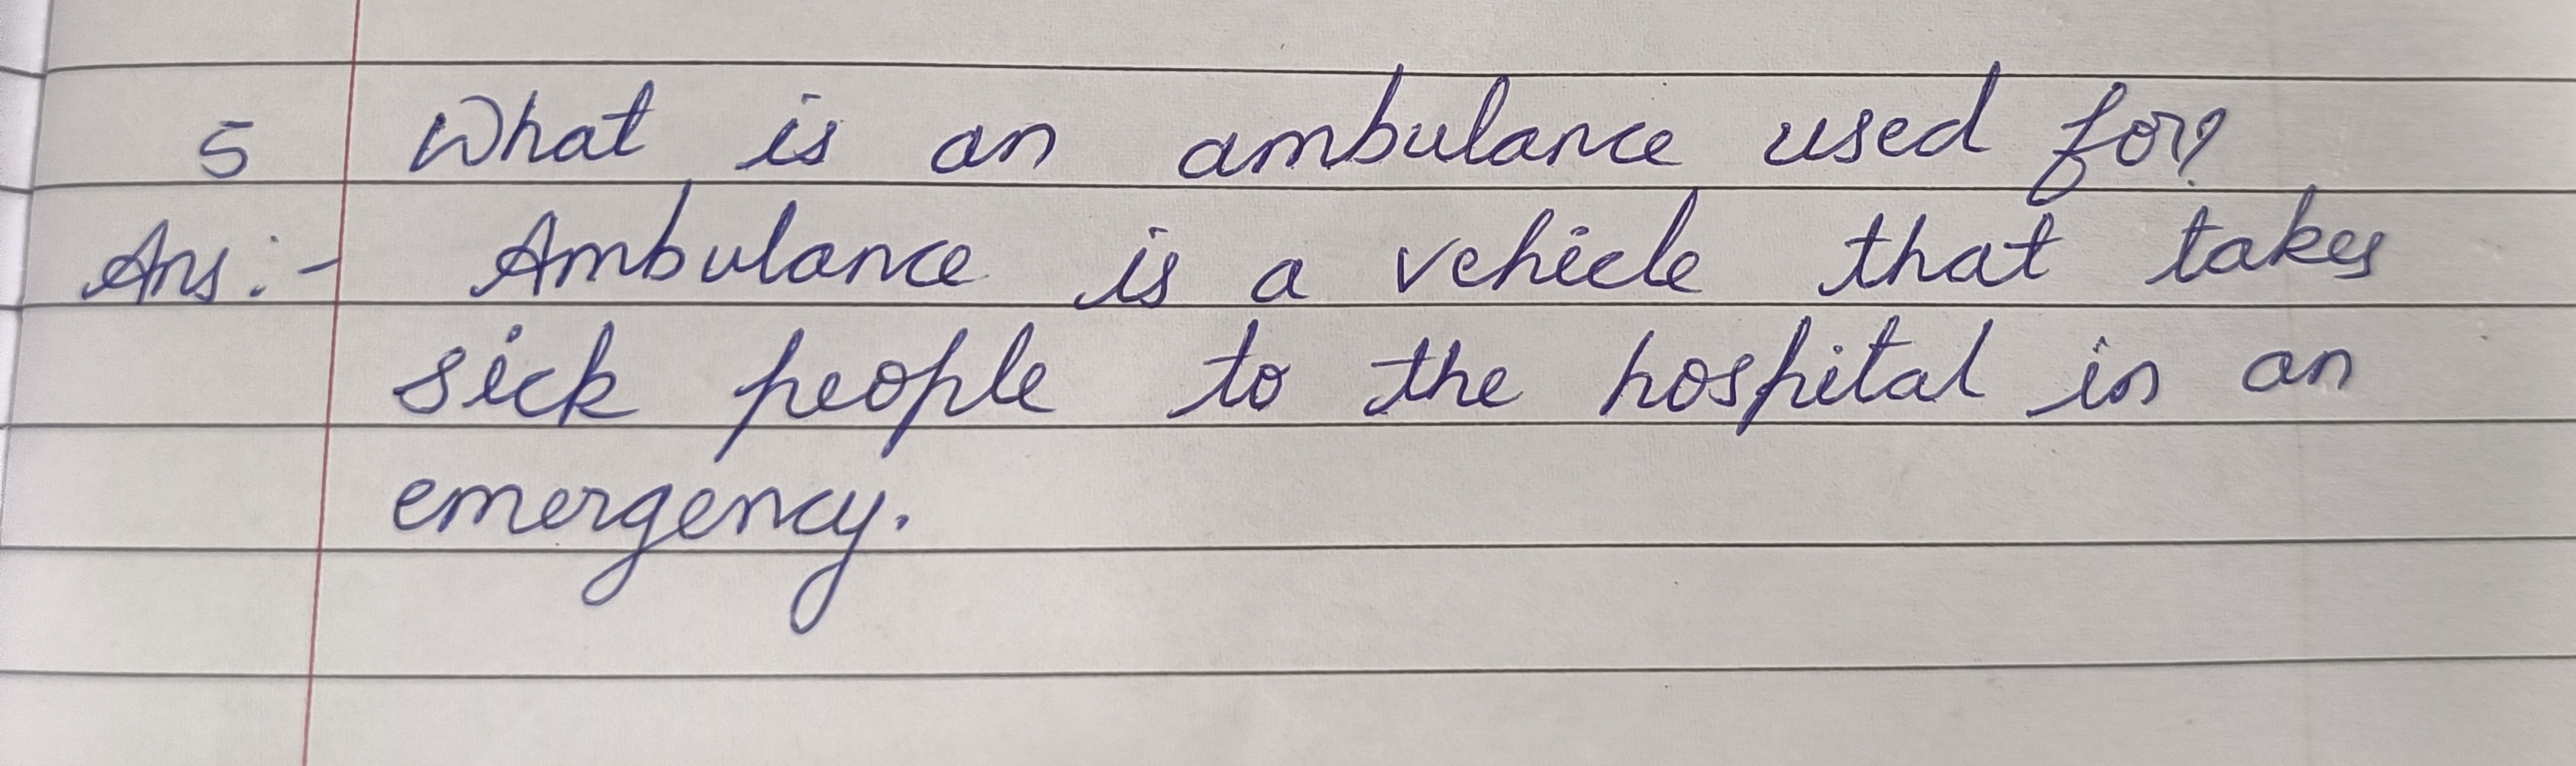 5 What is an ambulance used for?
Ans:- Ambulance is a vehicle that takes
sick people to the hospital in an
emergency.